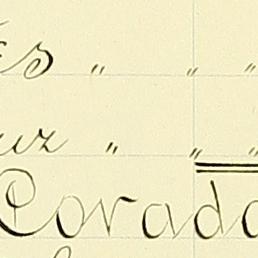 es " " "
uz " " "
Corado